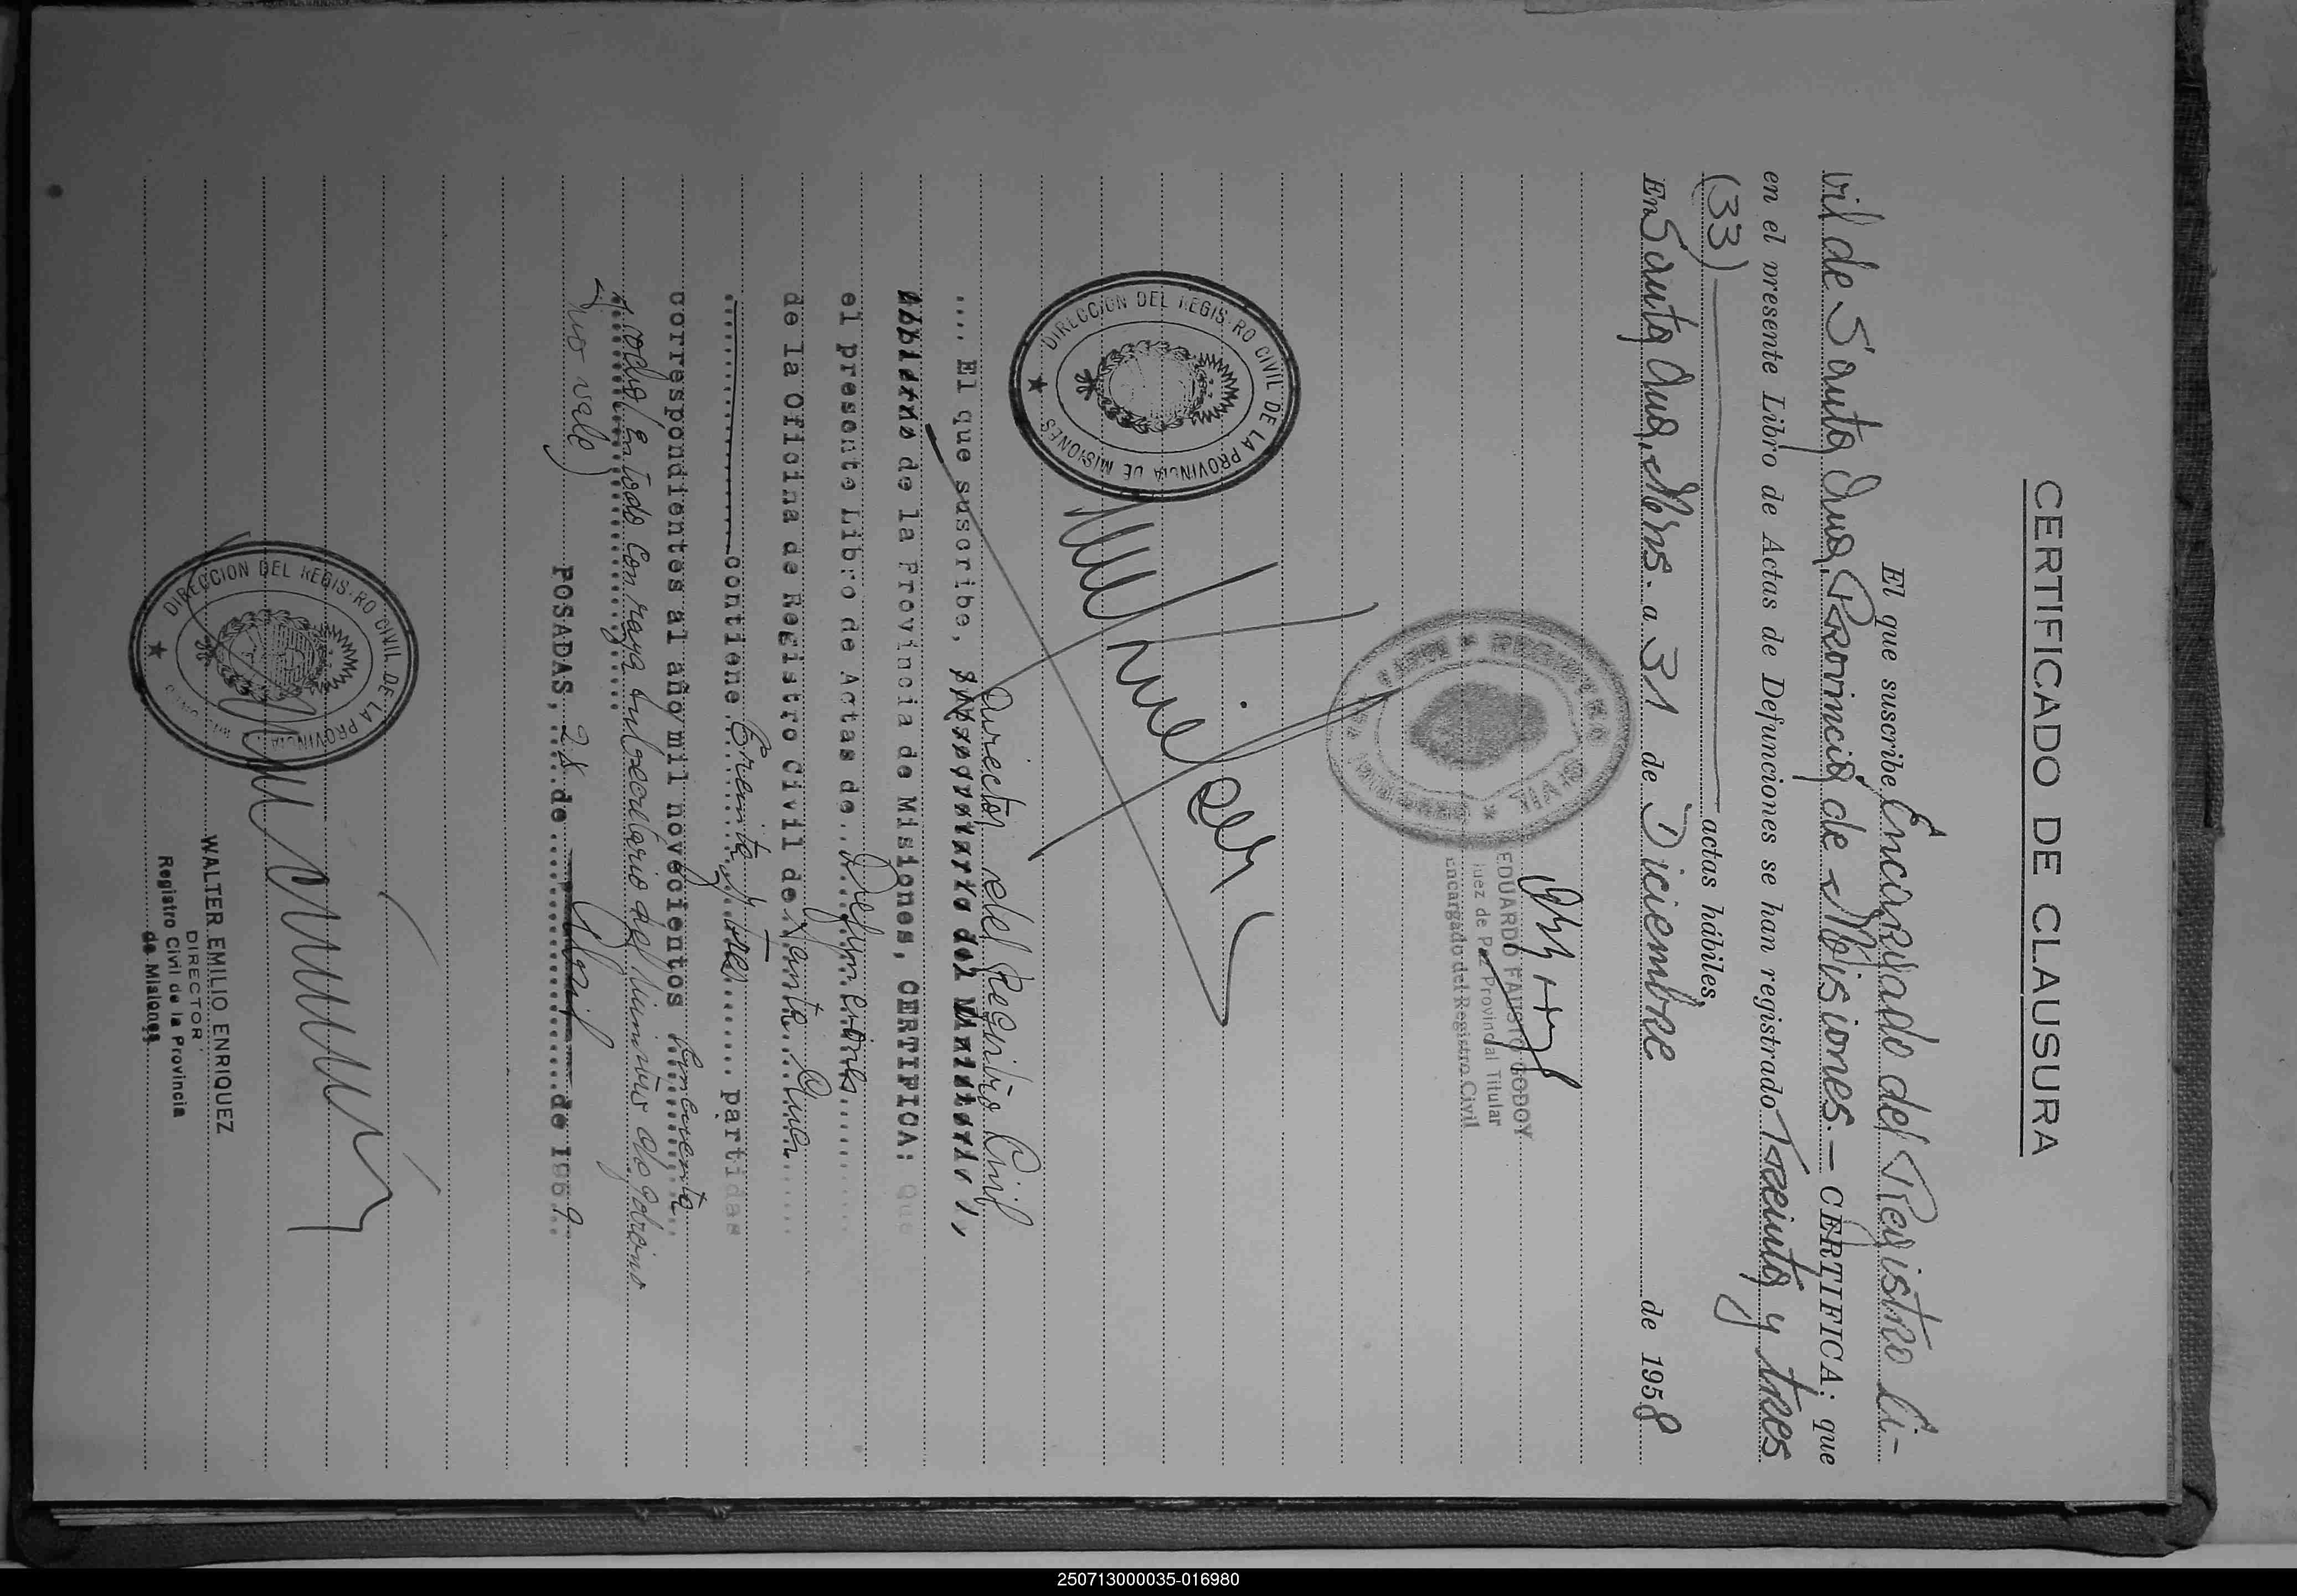 CERTIFICADO DE CLAUSURA
El que suscribe, Encargado del Registro Ci-
vil de Santa Ana, Provincia de Misiones.- CERTIFICA: que
en el presente Libro de Actas de Defunciones se han registrado Treinta y tres
(33) actas hábiles,
En Santa Ana, Mns. a 31 de Diciembre de 1958
EDUARDO FAUSTO GODOY
Juez de Paz Provincial Titular
Encargado del Registro Civil
DIRECCION DEL REGISTRO CIVIL DE LA PROVINCIA DE MISIONES
Director del Registro Civil
.... El que suscribe, Subsecretario del Ministerio,
Gobierno de la Provincia de Misiones, CERTIFICA: Que
el presente Libro de Actas de.. Defunciones
de la Oficina de Registro Civil de Santa Ana
contiene Treinta y Tres partidas
correspondientes al año mil novecientos cincuenta
y ocho/ Entado con raya subsecretario del Ministerio de gobierno
(no vale)
POSADAS, 28 de Abril de 1969
DIRECCION DEL REGISTRO CIVIL DE LA PROVINCIA
WALTER EMILIO ENRIQUEZ
DIRECTOR
Registro Civil de la Provincia
de Misiones
250713000035-016980